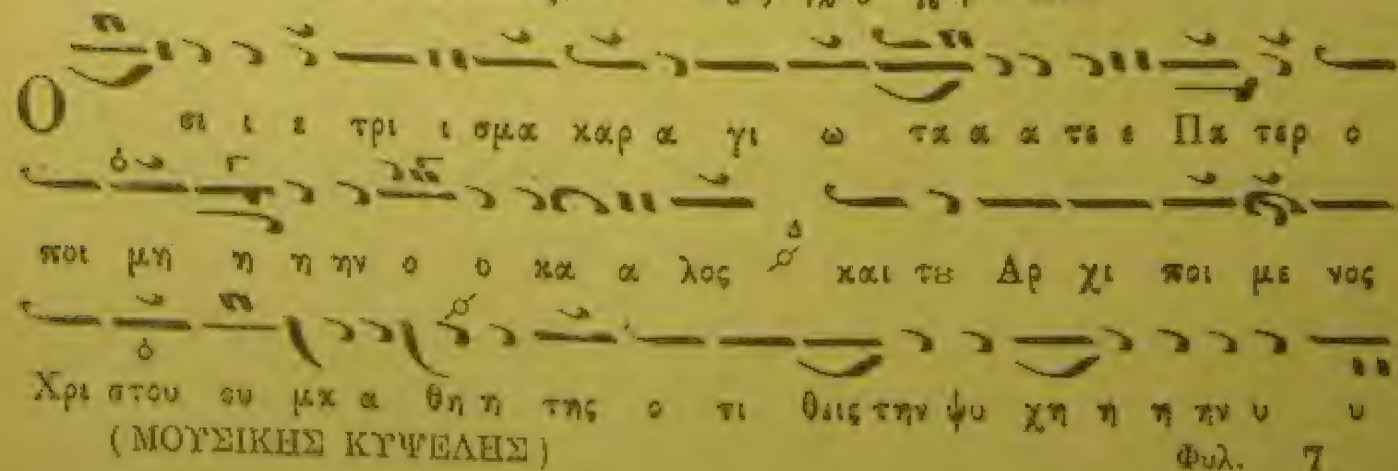 Ο σι ι ε τρι ι σμα καρ α γι ω τα α α τε ε Πα τερ ο
ποι μη η η ην ο ο κα α λος και τȣ Αρ χι ποι με νος
Χρι στου ου μα α θη η της ο τι θεις την ψυ χη η η ην υ υ
(ΜΟΥΣΙΚΗΣ ΚΥΨΕΛΗΣ) Φυλ. 7